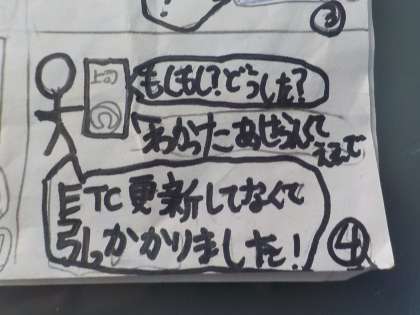 ③
上司
もしもし？どうした？
「わかったあせらんくてええで
ETC更新してなくて
引っかかりました！
④